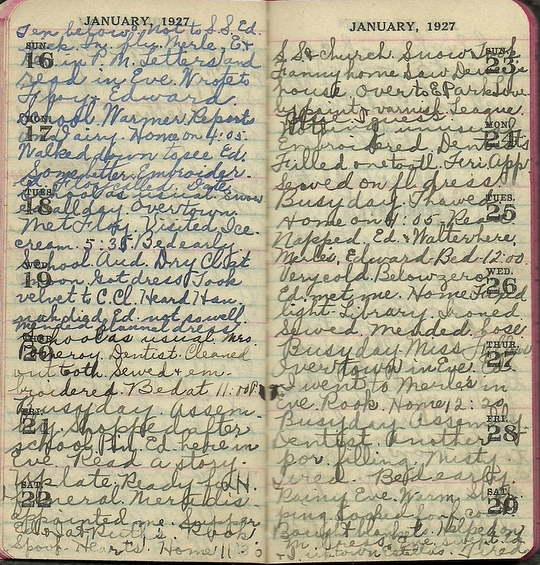 JANUARY, 1927
Ten below. Not to S.S. Ed.
SUN.
16
in P.M. Letters and
read in Eve. Wrote to
Floy. Edward
MON.
17
School. Warmer. Reports
Home on 4:05.
Walked down to see Ed.
Some better. Embroider.
Floy called. Date
TUES.
18
School as usual. Snow
ed all day. Overtown.
Met Floy. Visited. Ice
cream. 5:35. Bed early
WED.
19
School Aud. Dry Cl. at
noon. Got dress. Took
velvet to C.C. Heard Han.
Ed. not so well.
Mended flannel dress.
THUR.
20
School as usual. Mrs.
Pomeroy. Dentist. Cleaned
out tooth. Sewed & em-
broidered. Bed at 11:00P
FRI.
21
Busy day. Assem-
bly. Shopped after
school. Ed. here in
Eve. Read a story.
SAT.
22
Up late. Ready for N.
General. Merle dis
appointed me. Supper
at Ruth's. Rook.
Spoof. Hearts. Home 11:30
JANUARY, 1927
SUN.
23
S.S. & Church. Snow
Fanny home. Saw Dennis
house. Over to E Park. Love
ly paint & varnish. League
MON.
24
Nothing unusual
Embroidered. Dentists
Filled one tooth. Fri App.
Sewed on fl. dress
TUES.
25
Busy day. Thawed
Home on 4:05.
Napped. Ed. & Walter here.
Merle's, Edward. Bed 12:00
WED.
26
Very cold. Below zero
Ed. met me. Home
light. Library. Ironed
Sewed. Mended hose
THUR.
27
Busy day Miss
Overtown in Eve.
I went to Merle's in
Eve. Rook. Home 12:20
FRI.
28
Busy day. Assembly
Dentist. Another
por. filling. Misty.
Tired. Bed early
SAT.
29
Rainy Eve. Warm. Shop
ping
Helped on
dress. Eve.
uptown Tired